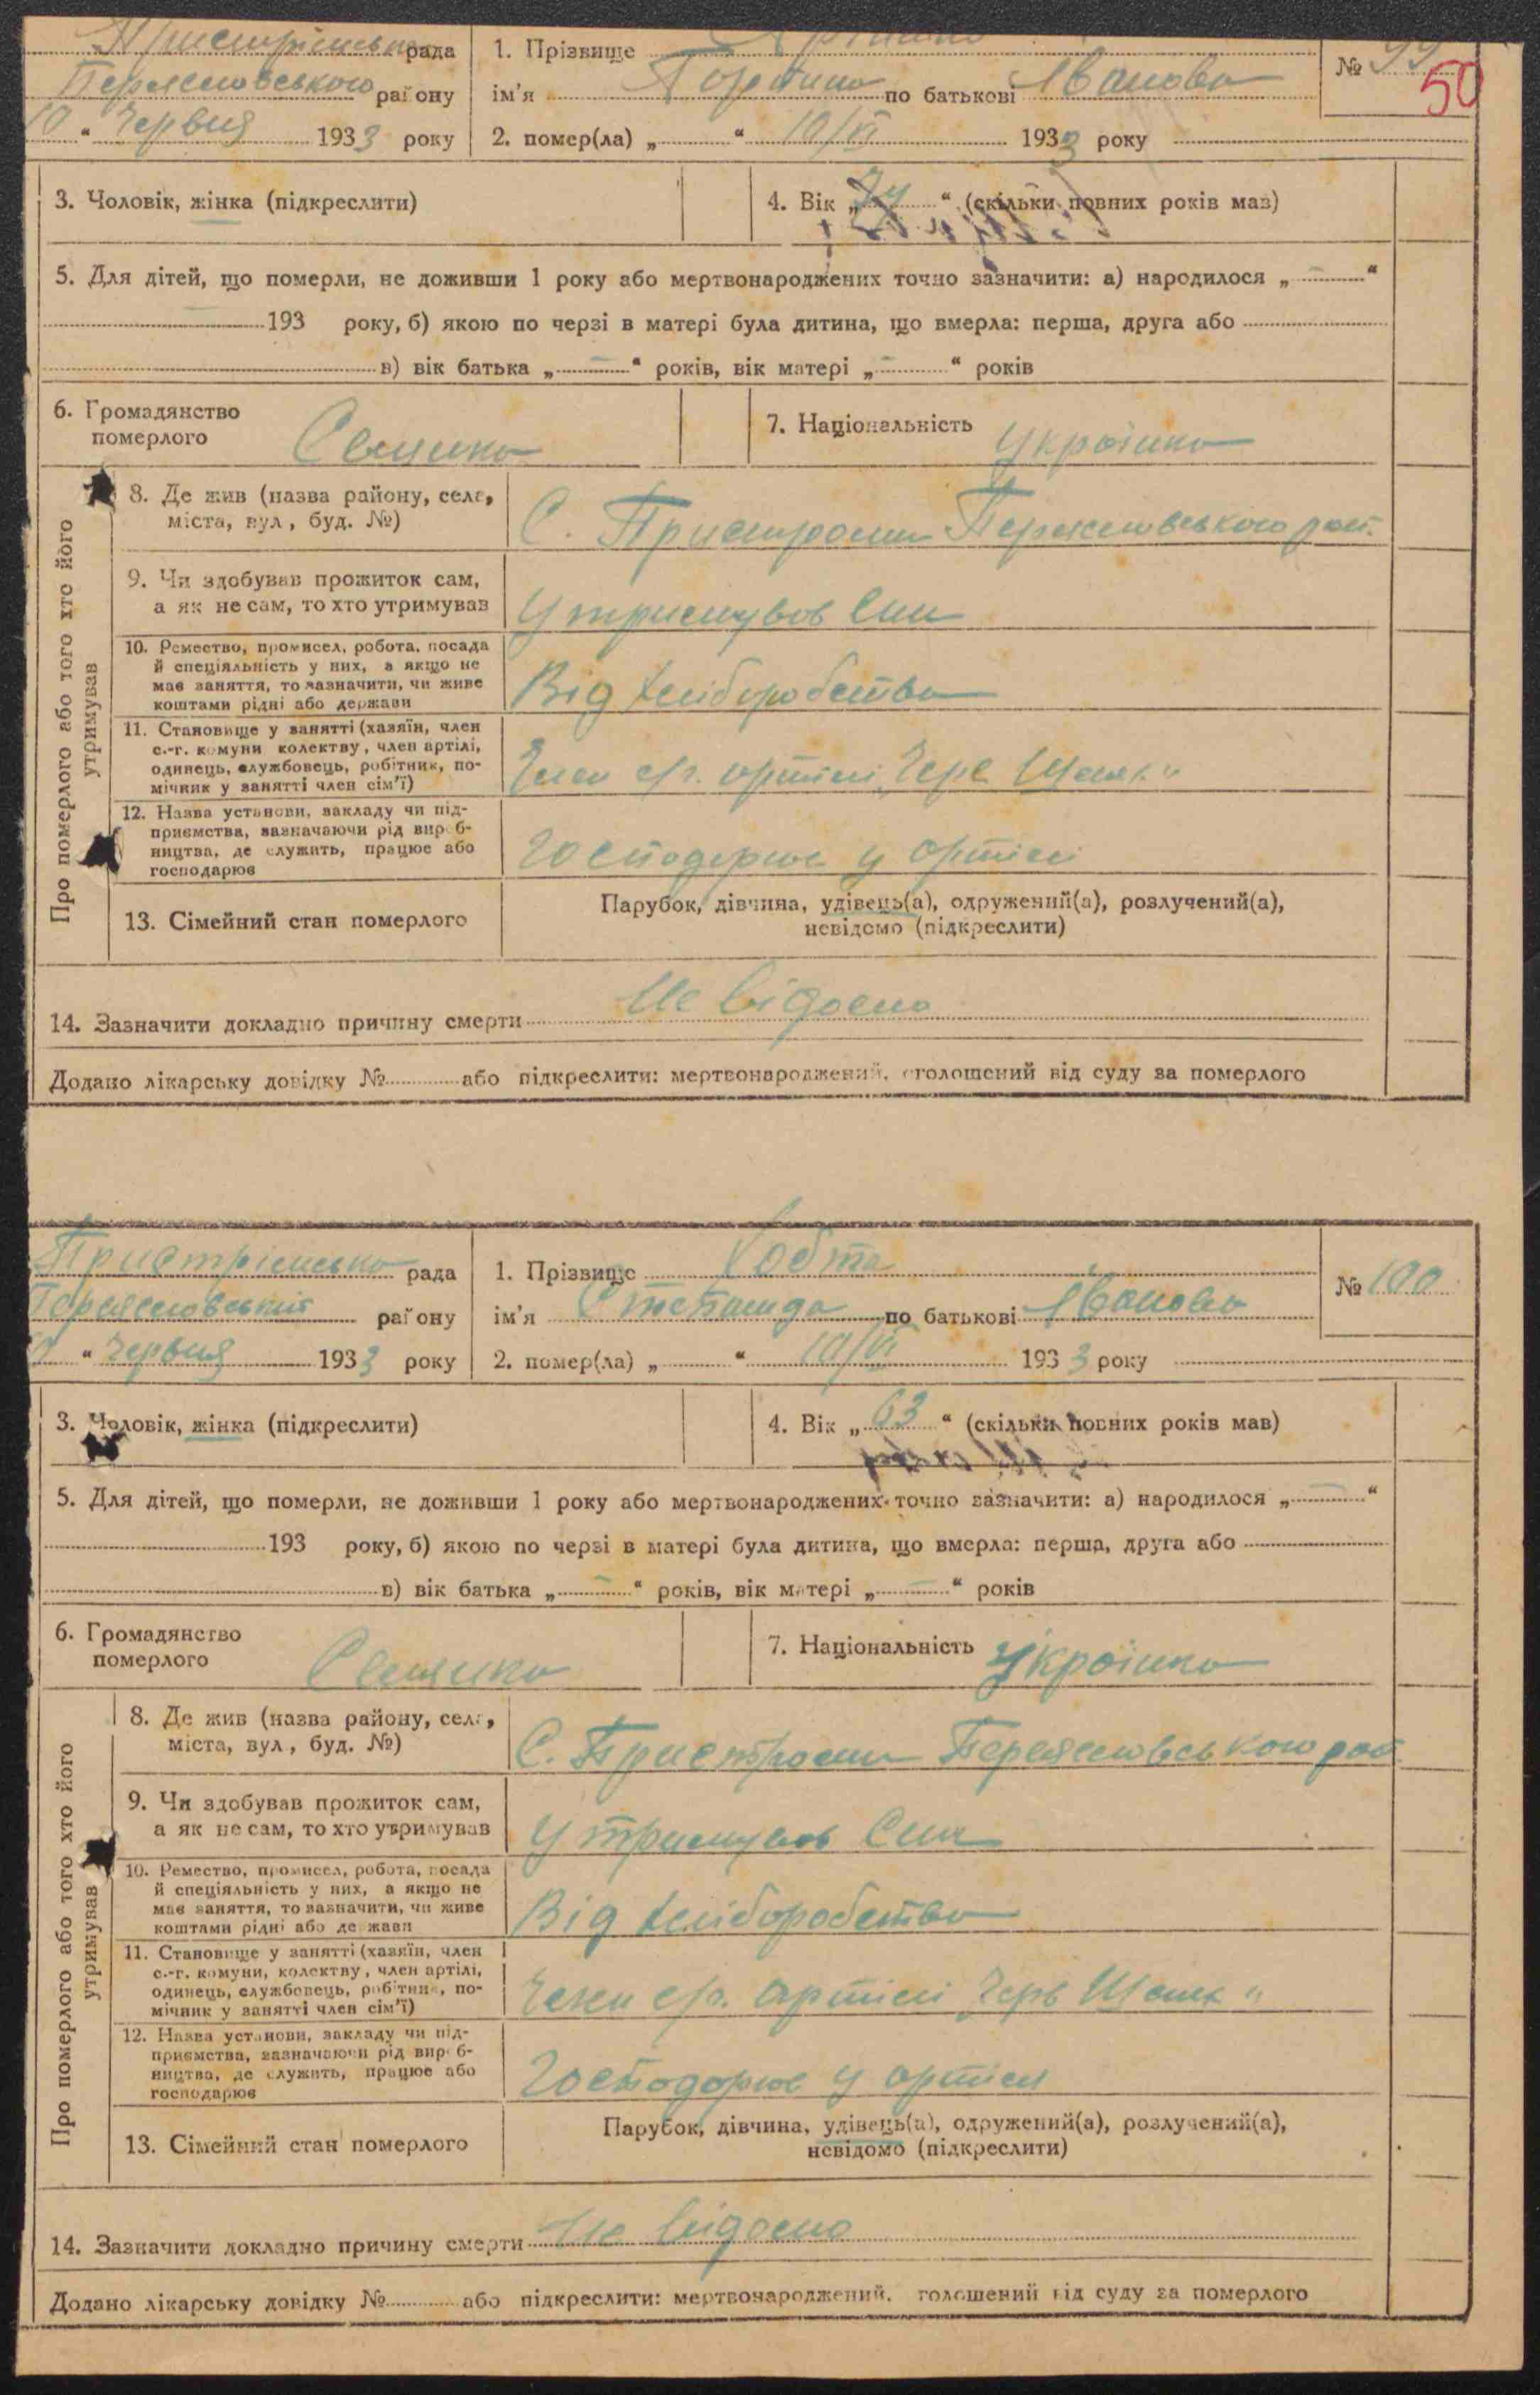 Пристрімська рада
Переяславського району
10 " Червня 1933 року
1. Прізвище
ім'я по батькові Іванова
2. помер(ла) „ " 10/VI 1933 року
№ 99
50
3. Чоловік, жінка (підкреслити)
4. Вік „ " (скільки повних років мав)
5. Для дітей, що померли, не доживши 1 року або мертвонароджених точно зазначити: а) народилося „ "
193 року, б) якою по черзі в матері була дитина, що вмерла: перша, друга або
в) вік батька „ " років, вік матері „ " років
6. Громадянство
померлого
7. Національність Українка
Про померлого або того хто його
утримував
8. Де жив (назва району, села,
міста, вул, буд. №)
С. Пристроми Переяславського рай.
9. Чи здобував прожиток сам,
а як не сам, то хто утримував
Утримував Син
10. Ремество, промисел, робота, посада
й спеціяльність у них, а якщо не
має заняття, то зазначити, чи живе
коштами рідні або держави
Від хліборобства
11. Становище у занятті (хазяїн, член
с.-г. комуни колектву, член артілі,
одинець, службовець, робітник, по-
мічник у занятті член сім'ї)
Член с/г. артілі „Черв Шлях"
12. Назва установи, закладу чи під-
приємства, зазначаючи рід вироб-
ництва, де служить, працює або
господарює
Господарює у артілі
13. Сімейний стан померлого
Парубок, дівчина, удівець(а), одружений(а), розлучений(а),
невідомо (підкреслити)
14. Зазначити докладно причину смерти Не відомо
Додано лікарську довідку № або підкреслити: мертвонароджений, оголошений від суду за померлого
Пристрімська рада
Переяславський району
" Червня 1933 року
1. Прізвище Ковта
ім'я Степанида по батькові Іванова
2. помер(ла) „ " 10/VI 1933 року
№ 100
3. Чоловік, жінка (підкреслити)
4. Вік „ 63 " (скільки повних років мав)
5. Для дітей, що померли, не доживши 1 року або мертвонароджених точно зазначити: а) народилося „ "
193 року, б) якою по черзі в матері була дитина, що вмерла: перша, друга або
в) вік батька „ " років, вік матері „ " років
6. Громадянство
померлого
7. Національність Українка
Про померлого або того хто його
утримував
8. Де жив (назва району, села,
міста, вул, буд. №)
С. Пристроми Переяславського рай
9. Чи здобував прожиток сам,
а як не сам, то хто утримував
Утримував Син
10. Ремество, промисел, робота, посада
й спеціяльність у них, а якщо не
має заняття, то зазначити, чи живе
коштами рідні або держави
Від хліборобства
11. Становище у занятті (хазяїн, член
с.-г. комуни, колектву, член артілі,
одинець, службовець, робітник, по-
мічник у занятті член сім'ї)
Член с/г. артілі „Черв Шлях"
12. Назва установи, закладу чи під-
приємства, зазначаючи рід вироб-
ництва, де служить, працює або
господарює
Господарює у артілі
13. Сімейний стан померлого
Парубок, дівчина, удівець(а), одружений(а), розлучений(а),
невідомо (підкреслити)
14. Зазначити докладно причину смерти Не відомо
Додано лікарську довідку № або підкреслити: мертвонароджений, оголошений від суду за померлого